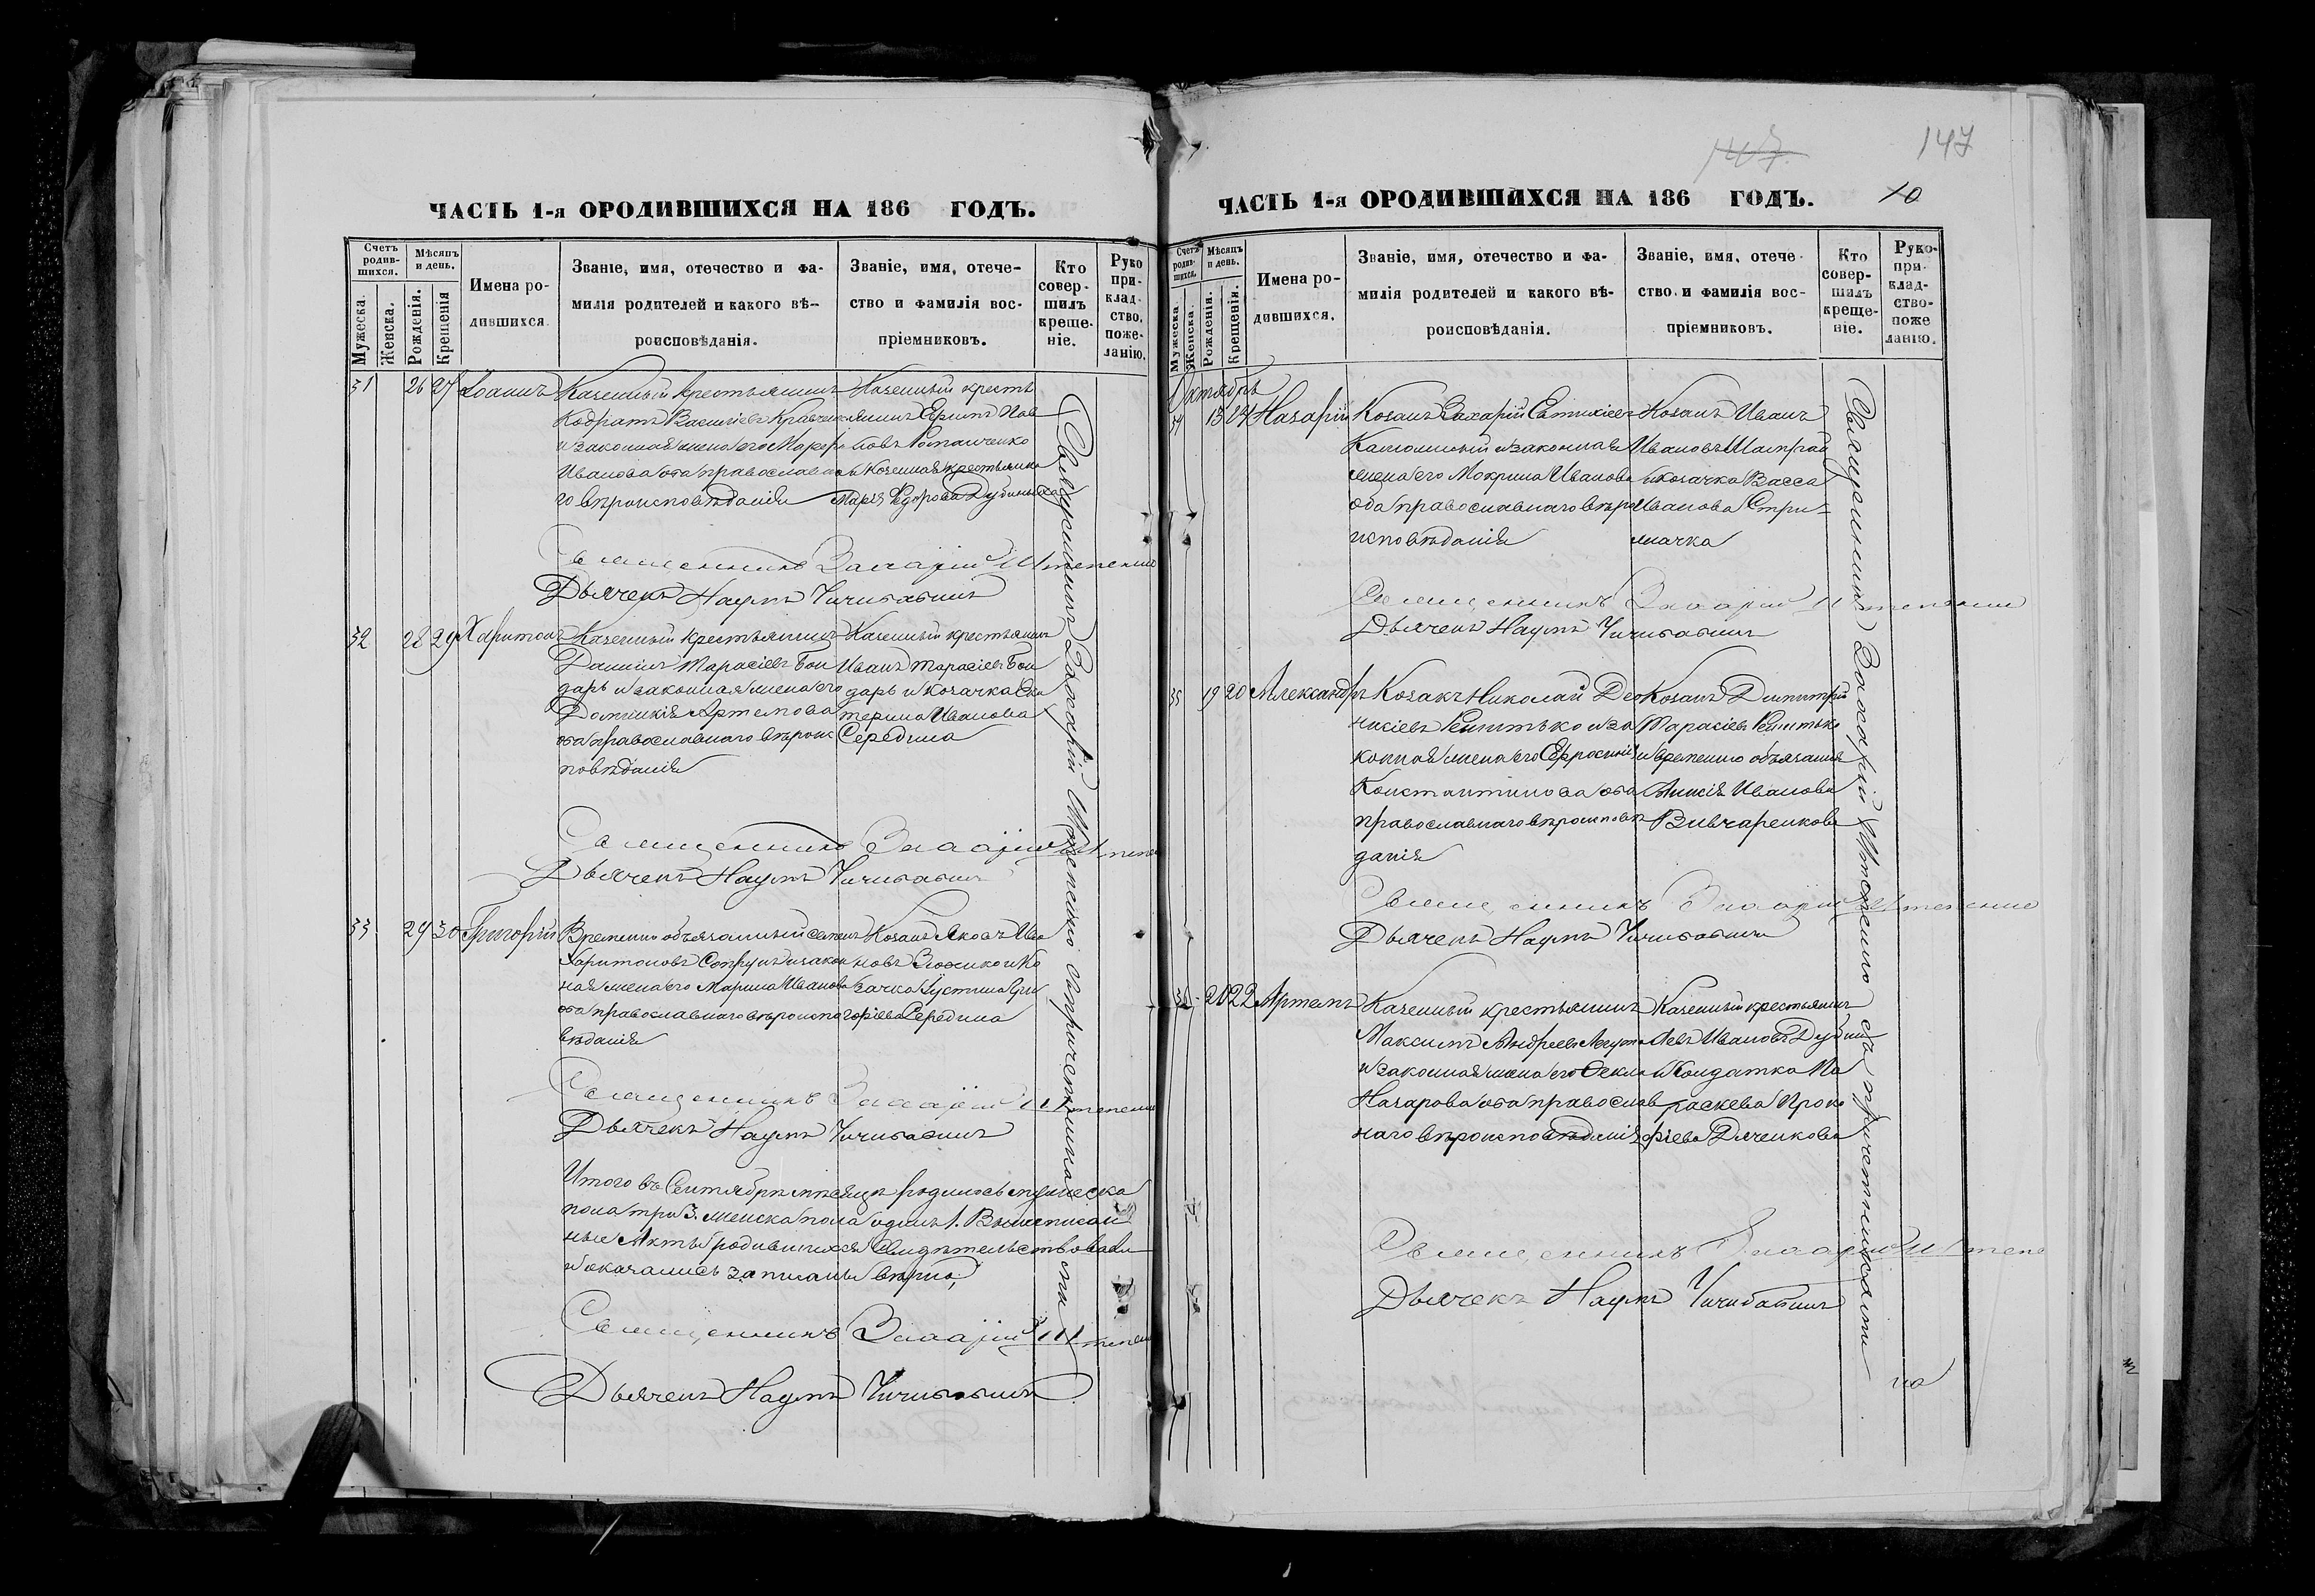 ЧАСТЬ 1-я О РОДИВШИХСЯ НА 186 ГОДЪ.
Счетъ родив-шихся.
Мѣсяцъ и день.
Мужеска.
Женска.
Рожденія.
Крещенія
Имена ро-
дившихся.
Званіе, имя, отечество и фа-
милія родителей и какого вѣ-
роисповѣданія.
Званіе, имя, отече-
ство и фамилія вос-
пріемниковъ.
Кто
совер-
шилъ
креще-
ніе.
Руко
при-
клад-
ство,
поже-
ланію.
31 26 27 Іоаннъ
Казенный крестьянинъ
Кодратъ Васильевъ Кравченко
и законная жена его
Иванова оба православна
го вѣроисповѣданія
Казенный кресть
янинъ
и Казенная крестьянка
Марія Едорова
Священникъ Захарій
Дьячекъ Наумъ Чичибабинъ
32 28 29 Харитонъ
Казенный крестьянинъ
Даніилъ Тарасіевъ Бон
дарь и законная жена его
Домникія Артемова
оба православнаго вѣроис
повѣданія
Казенный крестьянинъ
Иванъ Тарасіевъ Бон
дарь и козачка Ека
терина Иванова
Середина
Священникъ Захарій
Дьячекъ Наумъ Чичибабинъ
33 29 30 Григорій
Временно обязанный
Харитоновъ и закон
ная жена его Марина Иванова
оба православнаго вѣроиспо
вѣданія
Козакъ Яковъ Ива
новъ и Ко
зачка Іустина Гри
горіева Середина
Священникъ Захарій
Дьячекъ Наумъ Чичибабинъ
Итого въ Сентябрѣ мѣсяцѣ родилось мужеска
пола три 3. женска пола одинъ 1. Вышеписан
ные Акты родившихся Свидѣтельствовали
и оказались записаны вѣрно,
Священникъ Захарій
Дьячекъ Наумъ Чичибабинъ
Священникъ Захарій съ причетниками
147
147
10
ЧАСТЬ 1-я О РОДИВШИХСЯ НА 186 ГОДЪ.
Счетъ родив-шихся.
Мѣсяцъ и день.
Мужеска.
Женска.
Рожденія.
Крещенія.
Имена ро-
дившихся.
Званіе, имя, отечество и фа-
милія родителей и какого вѣ-
роисповѣданія.
Званіе, имя, отече-
ство и фамилія вос-
пріемниковъ.
Кто
совер-
шилъ
креще-
ніе.
Руко-
при-
клад-
ство-
поже
ланію.
Октябрь
34 13 14 Назарій
Козакъ Захарій Евтихіевъ
и законная
жена его Мокрина Иванова
оба православнаго вѣро
исповѣданія
Козакъ Иванъ
Ивановъ
и козачка Васса
Иванова Стри-
жачка
Священникъ Захарій
Дьячекъ Наумъ Чичибабинъ
35 19 20 Александръ
Козакъ Николай Део
нисіевъ и за
конная жена его Ефросинія
Константинова оба
православнаго вѣроисповѣ
данія
Козакъ Димитрій
Тарасіевъ
и временно обязаная
Анисія Иванова
Вивчаренкова
Священникъ Захарій
Дьячекъ Наумъ Чичибабинъ
36 21 22 Артемъ
Казенный крестьянинъ
Максимъ Андреевъ
и законная жена его Ѳекла
Назарова оба православ
наго вѣроисповѣданія
Казенный крестьянинъ
Левъ Ивановъ
и Солдатка Па
раскева Проко
фіева Дяченкова
Священникъ Захарій
Дьячекъ Наумъ Чичибабинъ
Священникъ Захарій съ причетниками